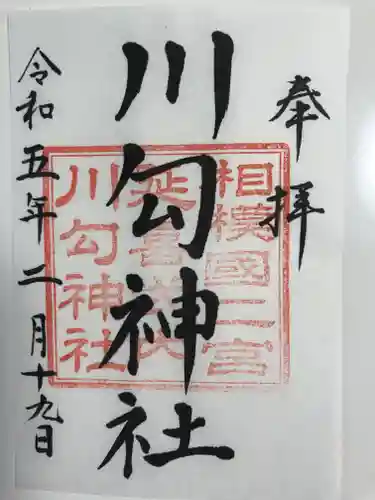 奉拝
川勾神社
相模國二宮
延喜式内
川勾神社
令和五年二月十九日